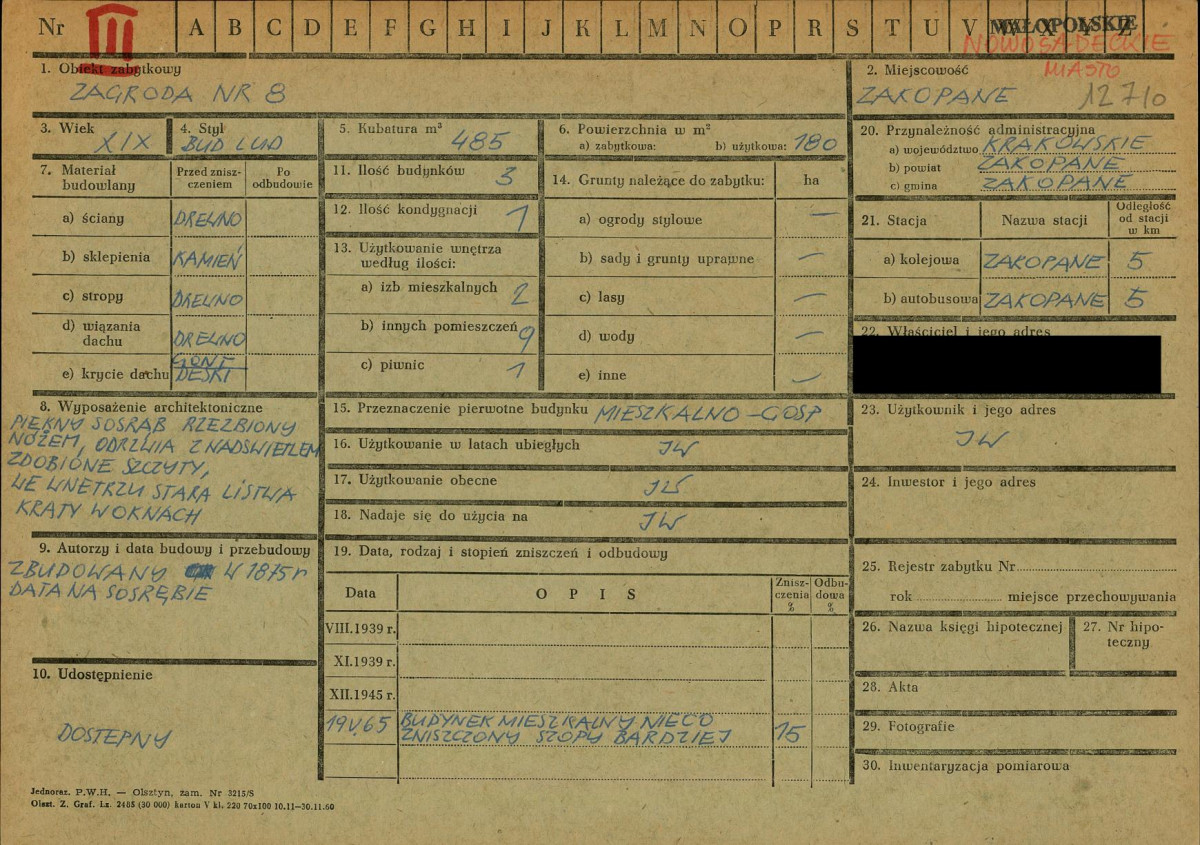 Nr III A B C D E F G H I J K L M N O P R S T U V W X Y Z
MAŁOPOLSKIE
NOWOSĄDECKIE
MIASTO
1. Obiekt zabytkowy
ZAGRODA NR 8
2. Miejscowość
ZAKOPANE 12710
3. Wiek
XIX
4. Styl
BUD LUD
5. Kubatura m³
485
6. Powierzchnia w m²
a) zabytkowa: b) użytkowa: 180
7. Materiał budowlany
Przed zniszczeniem
Po odbudowie
a) ściany DREWNO
b) sklepienia KAMIEŃ
c) stropy DREWNO
d) wiązania dachu DREWNO
e) krycie dachu GONT DESKI
8. Wyposażenie architektoniczne
PIĘKNY SOSRĄB RZEZBIONY
NOŻEM, ODRZWIA Z NADSWIETLEM
ZDOBIONE SZCZYTY,
WE WNETRZU STARA LISTWA
KRATY W OKNACH
9. Autorzy i data budowy i przebudowy
ZBUDOWANY W 1875 r
DATA NA SOSRĘBIE
10. Udostępnienie
DOSTEPNY
11. Ilość budynków 3
12. Ilość kondygnacji 1
13. Użytkowanie wnętrza
według ilości:
a) izb mieszkalnych 2
b) innych pomieszczeń 9
c) piwnic 1
14. Grunty należące do zabytku: ha
a) ogrody stylowe —
b) sady i grunty uprawne —
c) lasy —
d) wody —
e) inne —
15. Przeznaczenie pierwotne budynku MIESZKALNO-GOSP
16. Użytkowanie w latach ubiegłych JW
17. Użytkowanie obecne JW
18. Nadaje się do użycia na JW
19. Data, rodzaj i stopień zniszczeń i odbudowy
Data
OPIS
Zniszczenia %
Odbudowa %
VIII.1939 r.
XI.1939 r.
XII.1945 r.
19 V.65 BUDYNEK MIESZKALNY NIECO
ZNISZCZONY SZOPY BARDZIEJ 15
20. Przynależność administracyjna
a) województwo KRAKOWSKIE
b) powiat ZAKOPANE
c) gmina ZAKOPANE
21. Stacja
Nazwa stacji
Odległość od stacji w km
a) kolejowa ZAKOPANE 5
b) autobusowa ZAKOPANE 5
22. Właściciel i jego adres
23. Użytkownik i jego adres
JW
24. Inwestor i jego adres
25. Rejestr zabytku Nr
rok miejsce przechowywania
26. Nazwa księgi hipotecznej
27. Nr hipoteczny
28. Akta
29. Fotografie
30. Inwentaryzacja pomiarowa
Jednoraz. P.W.H. — Olsztyn, zam. Nr 3215/S
Olszt. Z. Graf. Lz. 2485 (30 000) karton V kl. 220 70x100 10.11—30.11.60